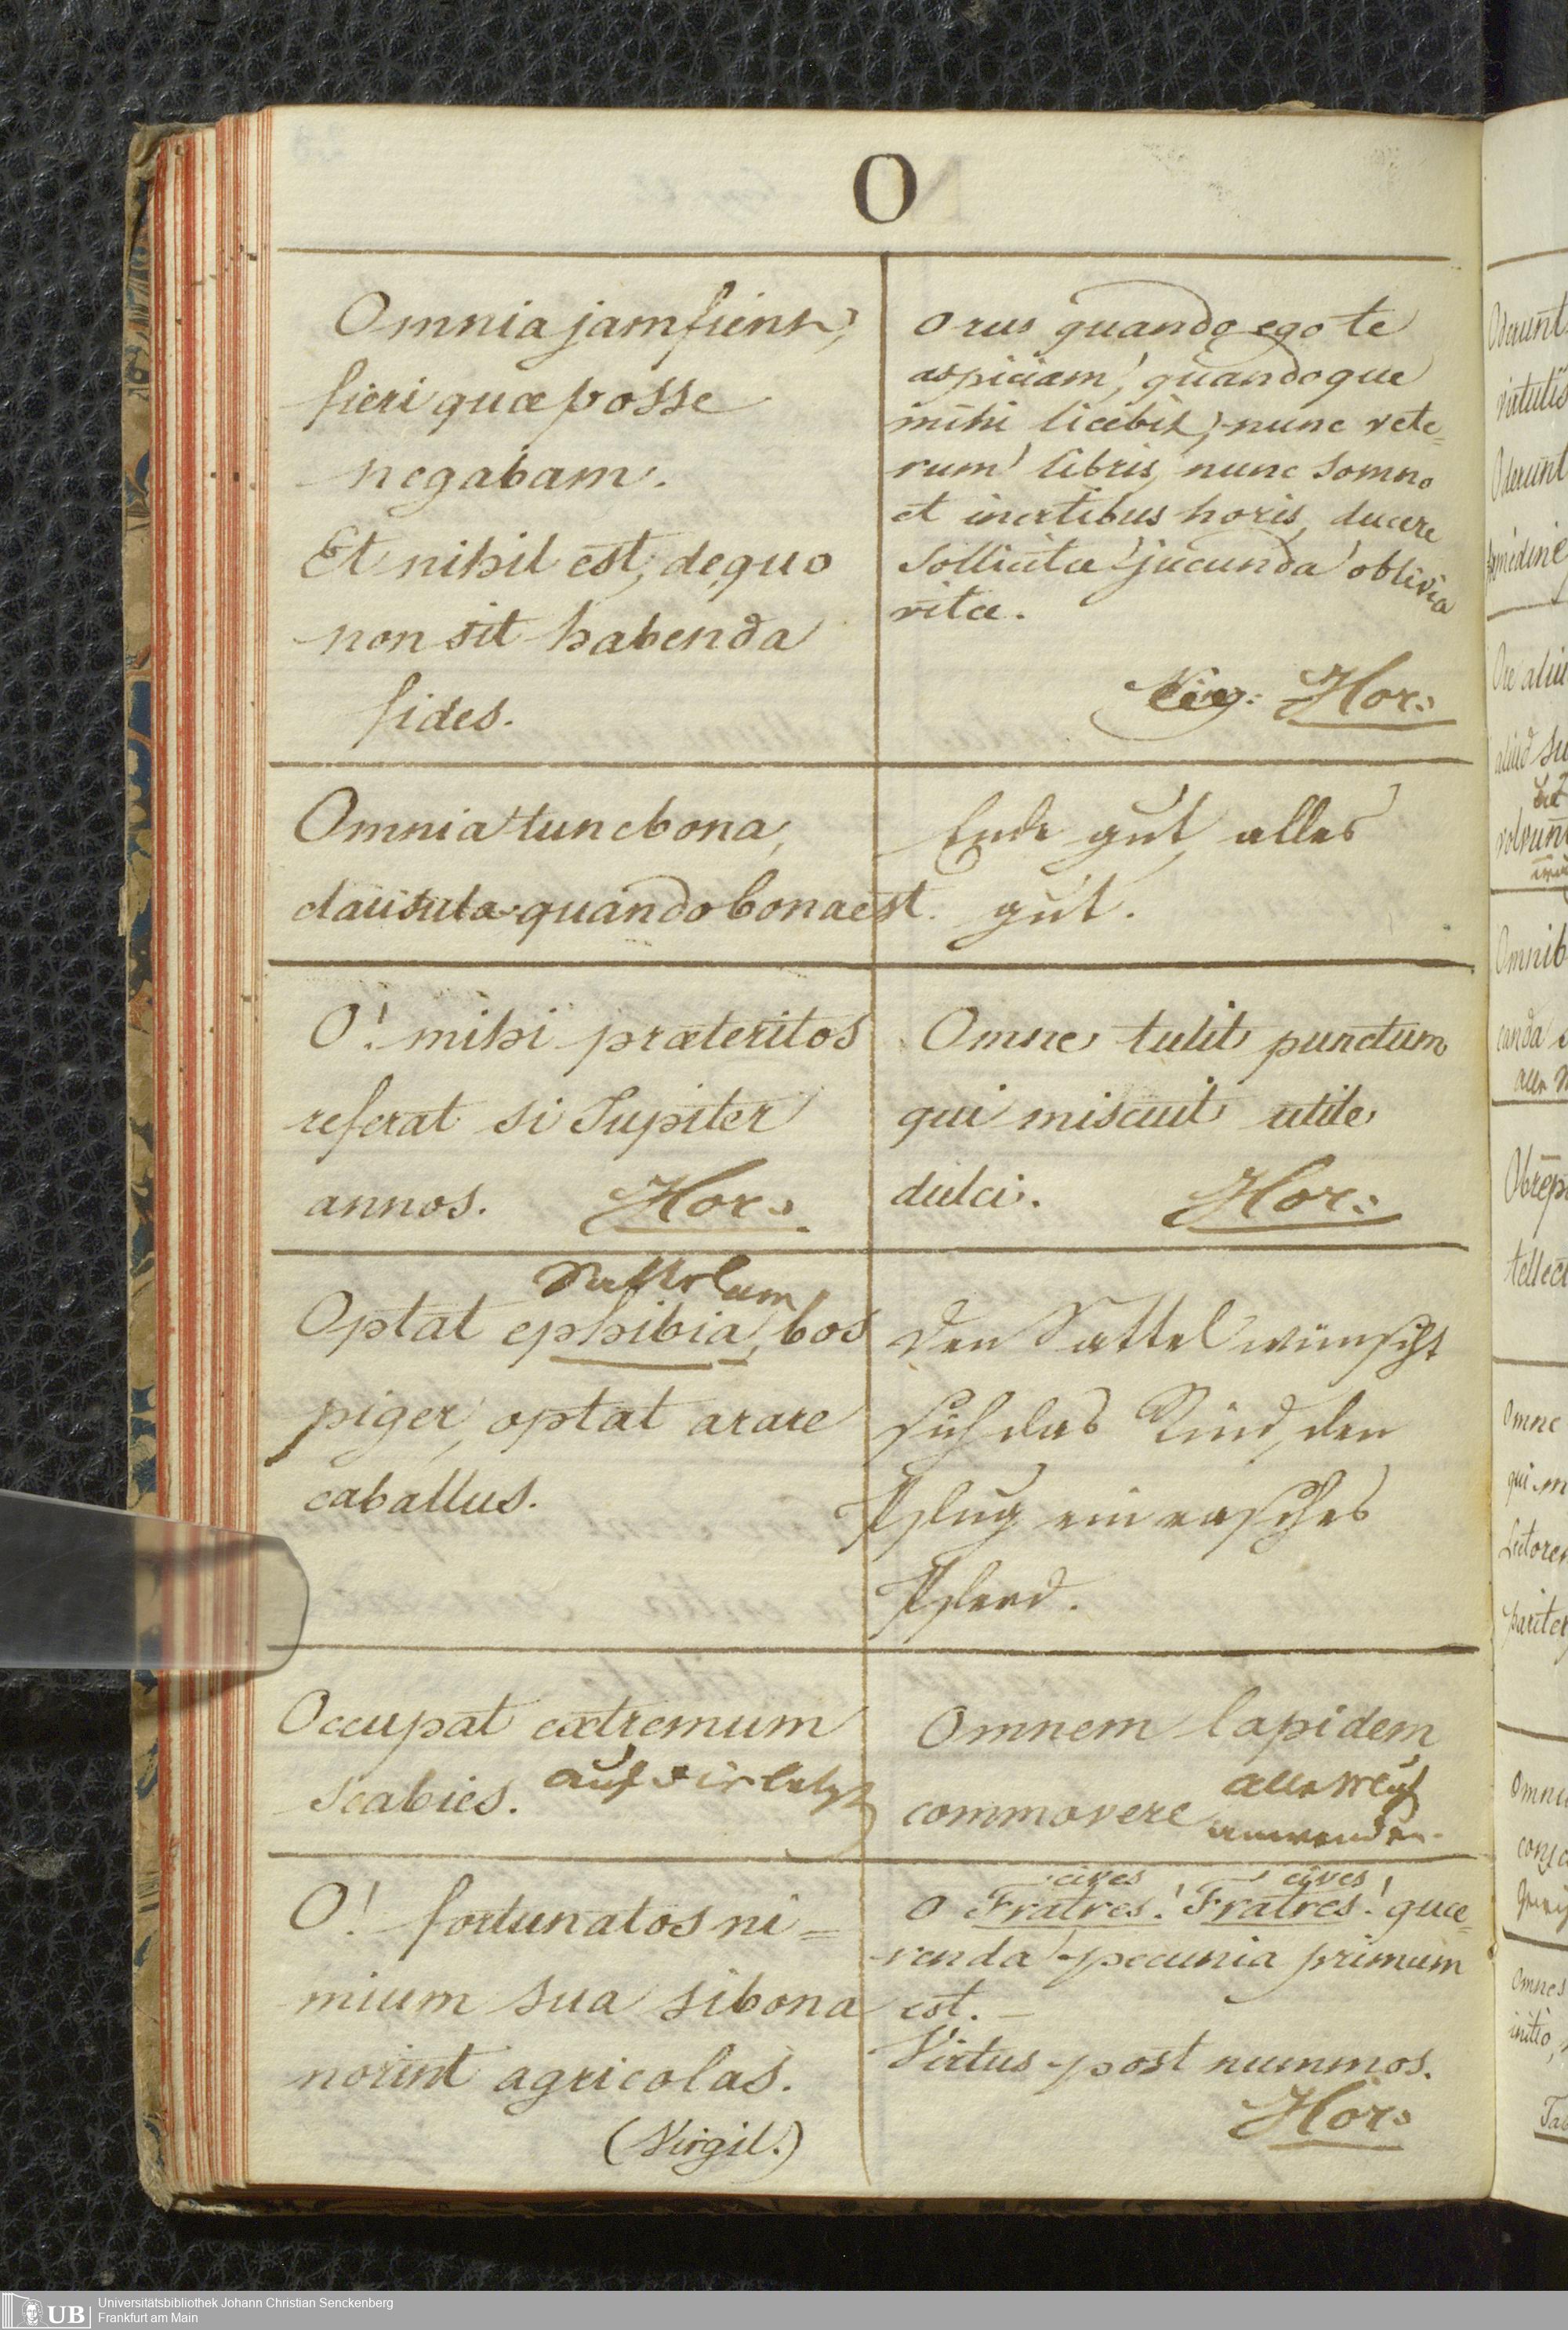 O
Omnia jam fient,
fieri quæ posse
negabam.
Et nihil est, de quo
non sit habenda
fides.
O rus quando ego te
aspiciam! quandoque
mihi licebit, nunc vete=
rum libris, nunc somno
et inertibus horis, ducere
sollicitæ jucunda oblivia
vitæ.
Hor:
Omnia tunc bona,
clausula quando bona est.
Ende gut, alles
gut.
O! mihi præteritos
referat si Jupiter
annos. Hor:
Omne tulit punctum
qui miscuit utile
dulci. Hor:
Optat ephibia, bos
piger, optat arare
caballus.
Den Sattel wünscht
sich das Rind, den
Pflug ein rasches
Pferd.
Occupat extremum
scabies. auf die letzt
Omnem lapidem
commovere alle Müh
anwenden.
O! fortunatos ni=
mium sua si bona
norint agricolas.
(Virgil.)
cives cives
O Fratres! Fratres! quæ=
renda pecunia primum
est. —
Virtus post nummos.
Hor:
Oderunt
virtutis
Oderunt
aliud
Omnib
canda
Obrep
tellect
Omne
qui m
Lectorem
pariter
Omnes
initio,
UB
Universitätsbibliothek Johann Christian Senckenberg
Frankfurt am Main